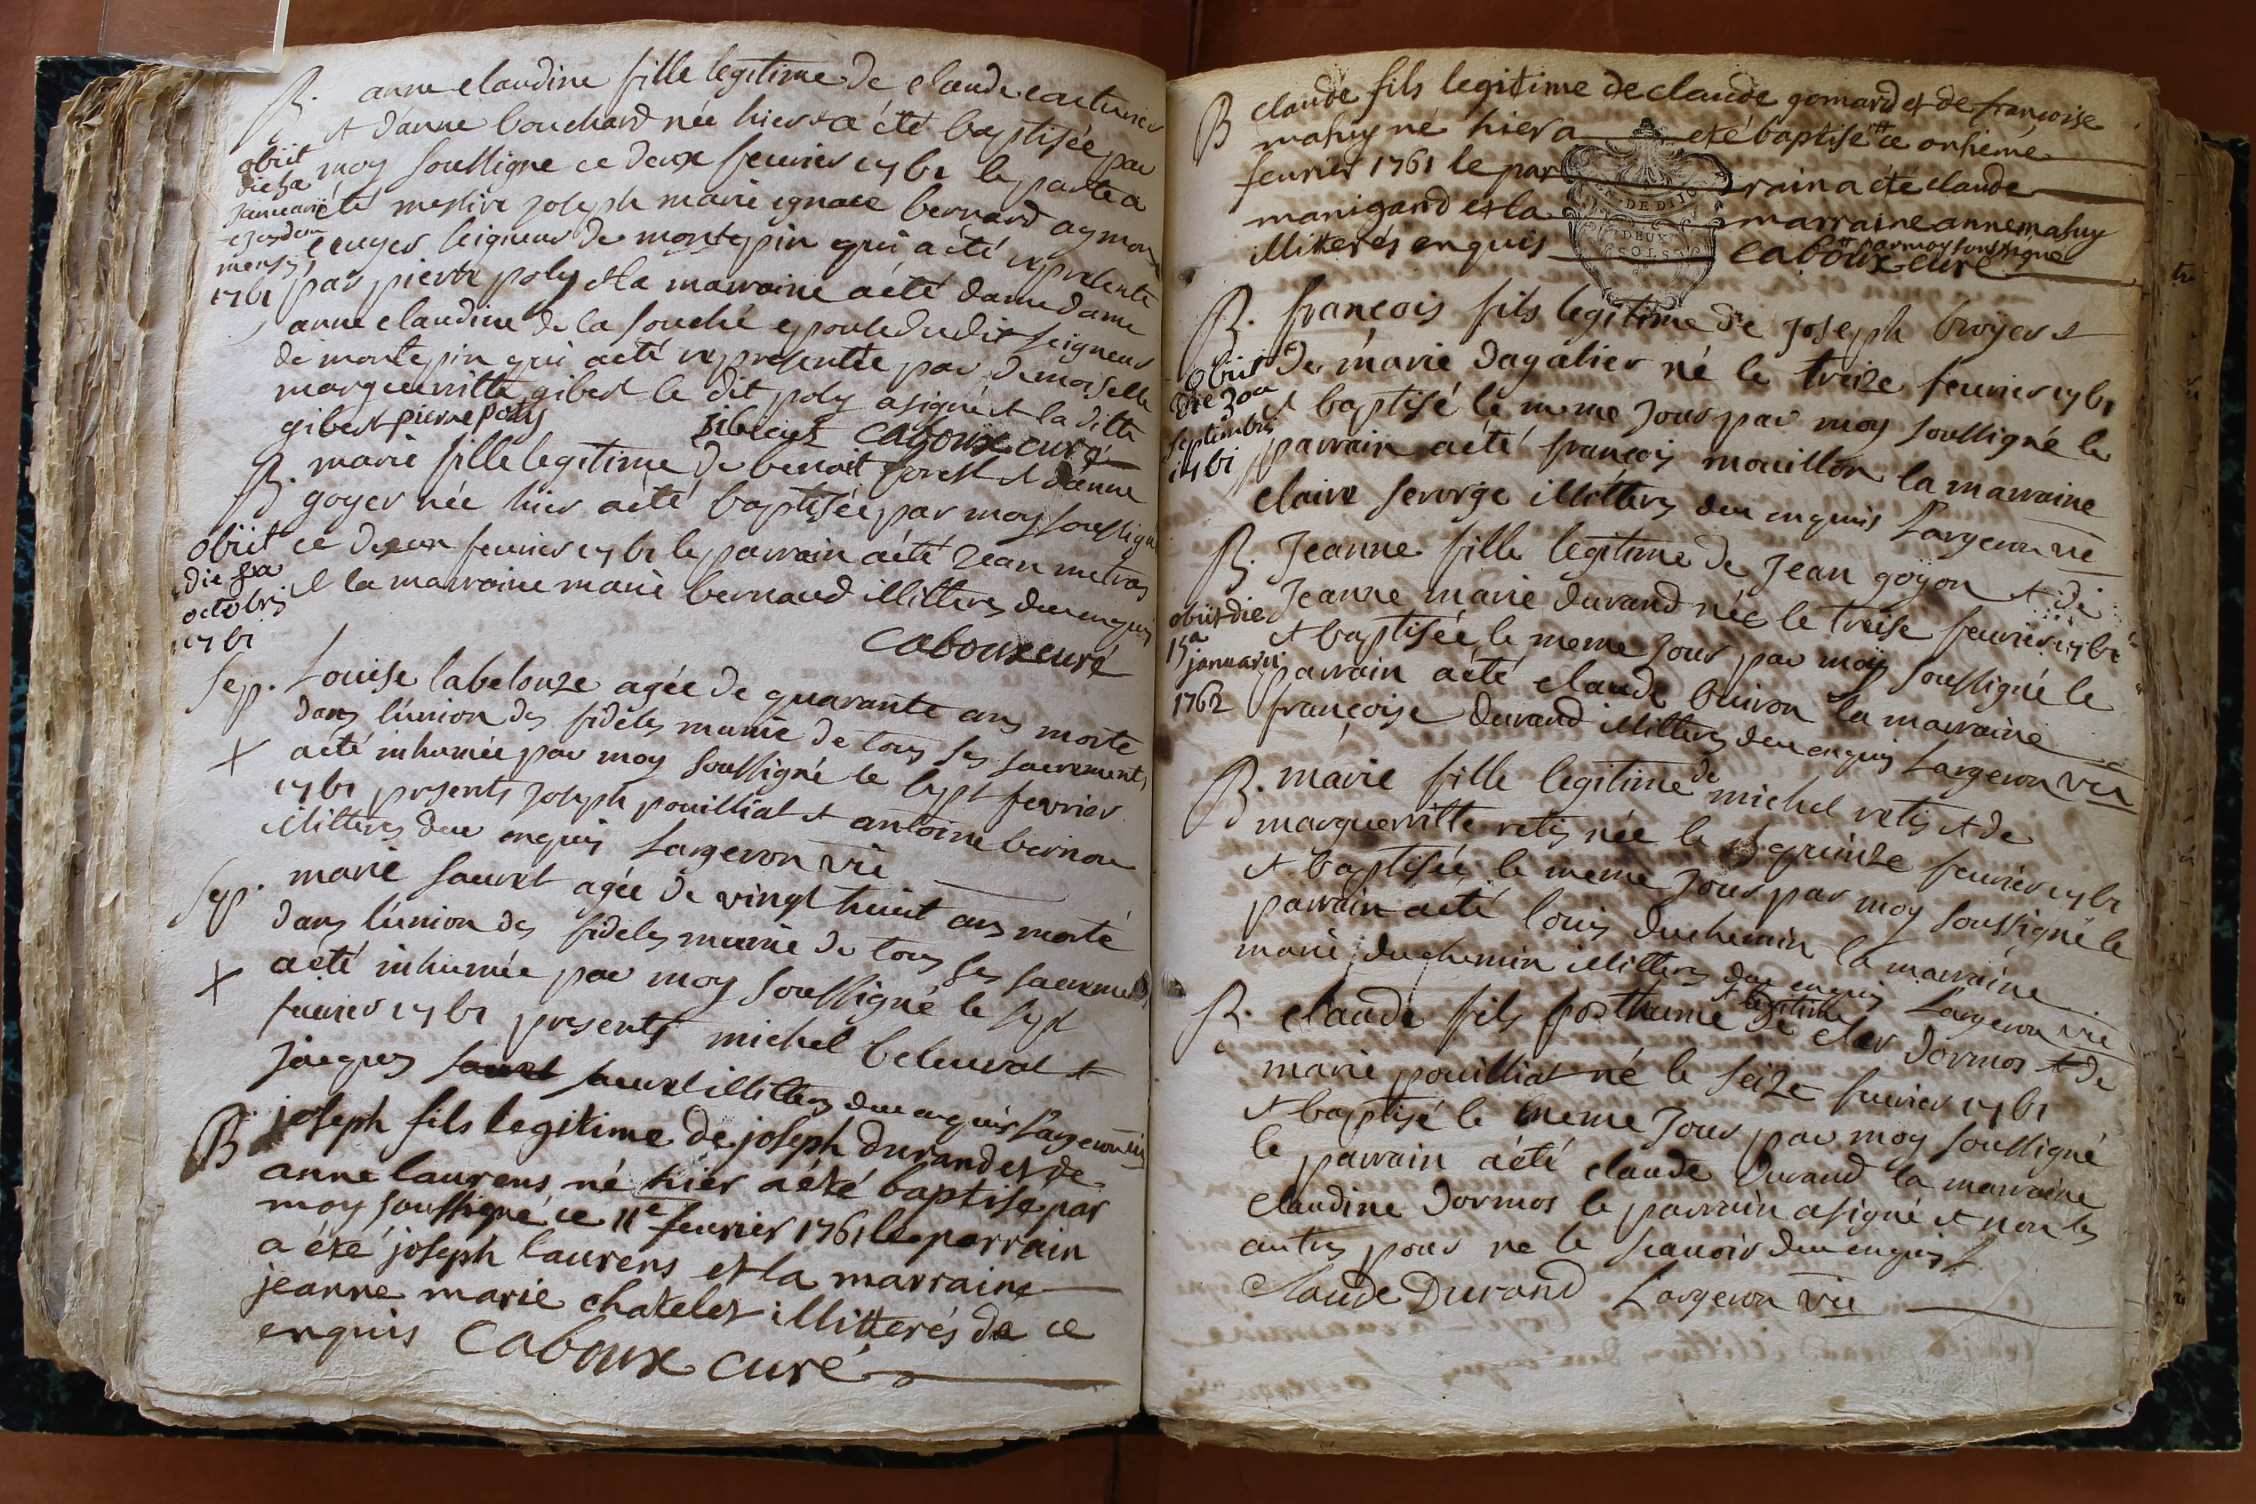 B. anne claudine fille legitime de claude couturier
et d'anne bouchard née hier a été baptisée par
moy soussigné ce deux feurier 1761 le parrein a
été messire joseph marie ignace bernard aymon
ecuyer seigneur de montepin qui a été represente
par pierre poly et la marraine a été dame dame
anne claudine de la souche epouse dudit seigneur
de montepin qui a été representée par demoiselle
margueritte gibert le dit poly a signé et la ditte
gibert pierre poly gibert Caboux curé
obiit
die
januarii
ejusdem
mensis
1761
B. marie fille legitime de benoit forest et d'anne
goyer née hier a été baptisée par moy soussigné
ce deux feurier 1761 le parrain a été jean metras
et la marraine marie bernard illitteres de ce enquis
Caboux curé
obiit
die
octobris
1761
Sep. Louise labelouze agée de quarante ans morte
dans l'union des fideles munie de tous ses sacrements
+ a été inhumée par moy soussigné le sept fevrier
1761 presents joseph pouilliat et antoine bernon
illitteres de ce enquis Largeron vic
Sep. marie sauret agée de vingt huit ans morte
dans l'union des fideles munie de tous ses sacremens
+ a été inhumée par moy soussigné le sept
feurier 1761 presents michel beluvat et
jaques sauret sauret illitteres de ce enquis Largeron vic
B joseph fils legitime de joseph durand et de
anne laurens né hier a été baptisé par
moy soussigné ce 11e feurier 1761 le parrain
a été joseph laurens et la marraine
jeanne marie chatelet illitterés de ce
enquis Caboux curé
B claude fils legitime de claude gomard et de françoise
mahuy né hier a été baptisé ce onsieme
feurier 1761 le parrain a été claude
manigand et la marraine anne mahuy
illitterés enquis par moy soussigné
Caboux curé
DE DIJ
DEUX
SOLS
B. françois fils legitime de joseph broyer et
de marie dagalier né le treize feurier 1761
et baptisé le meme jour par moy soussigné le
parrain a été françois mouillon la marraine
claire serorge illitteres de ce enquis Largeron vic
obiit
die 30a
septembris
1761
B. Jeanne fille legitime de Jean goyon et de
Jeanne marie durand née le treise feurier 1761
et baptisée le meme jour par moy soussigné le
parrain a été claude buiron la marraine
françoise durand illitteres de ce enquis Largeron vic
obiit die
15a
januarii
1762
B. marie fille legitime de michel retis et de
margueritte retis née le quinze feurier 1761
et baptisée le meme jour par moy soussigné le
parrain a été louis duchemin la marraine
marie duchemin illitteres de ce enquis Largeron vic
B. claude fils posthume et legitime de cler dormos et de
marie pouilliat né le seize feurier 1761
et baptisé le meme jour par moy soussigné
le parrain a été claude durand la marraine
claudine dormos le parrain a signé et non les
autres pour ne le scauoir de ce enquis
Claude Durand Largeron vic